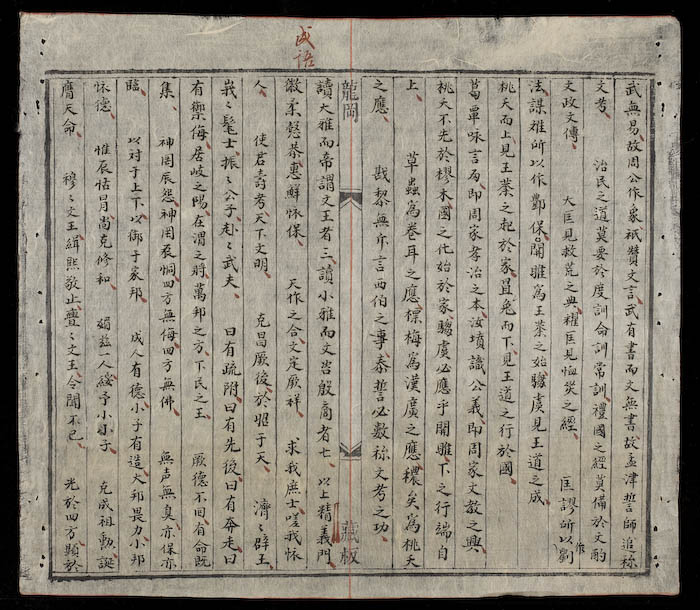 成语
武無易故周公作彖祇贊文言武有書而文無書故孟津誓師追称
文考 治民之道莫要於度訓命訓常訓禮國之經莫備於文酌
文政文傳 大匡見救荒之典糴匡見恤災之經 匡謬所以作劉
法謀雅所以作酆保 關雎為王業之始騶虞見王道之成
桃夭而上見王業之起於家罝兔而下見王道之行於國
葛覃咏言即周家孝治之本汝墳識公義即周家文教之興
桃夭不先於樛木國之化始於家騶虞必應乎關雎下之行端自
上 草蟲為卷耳之應摽梅為漢廣之應穠矣為桃夭
之應 戡黎無外言西伯之事泰誓必数称文考之功
龍岡 藏板
讀大雅而帝謂文王者三讀小雅而文咨殷商者七 以上精義門
徽柔懿恭惠鮮怀保 天作之合文定厥祥 求我庶士嗟我怀
人 使君壽考天下文明 克昌厥後於昭于天 濟〻辟王
峩〻髦士振〻公子赳〻武夫 曰有疏附曰有先後曰有奔走曰
有禦侮居岐之陽在渭之將萬邦之方下民之王 厥德不回有命既
集 神罔辰怨神罔辰恫四方無侮四方無佛 無声無臭亦保亦
臨 以对于上下以御于家邦 成人有德小子有造大邦畏力小邦
怀德 惟辰怙冒尚克修和 媚兹一人綏予小子 克成祖勳誕
膺天命 穆〻文王緝熙敬止亹〻文王令聞不已 光於四方顯於